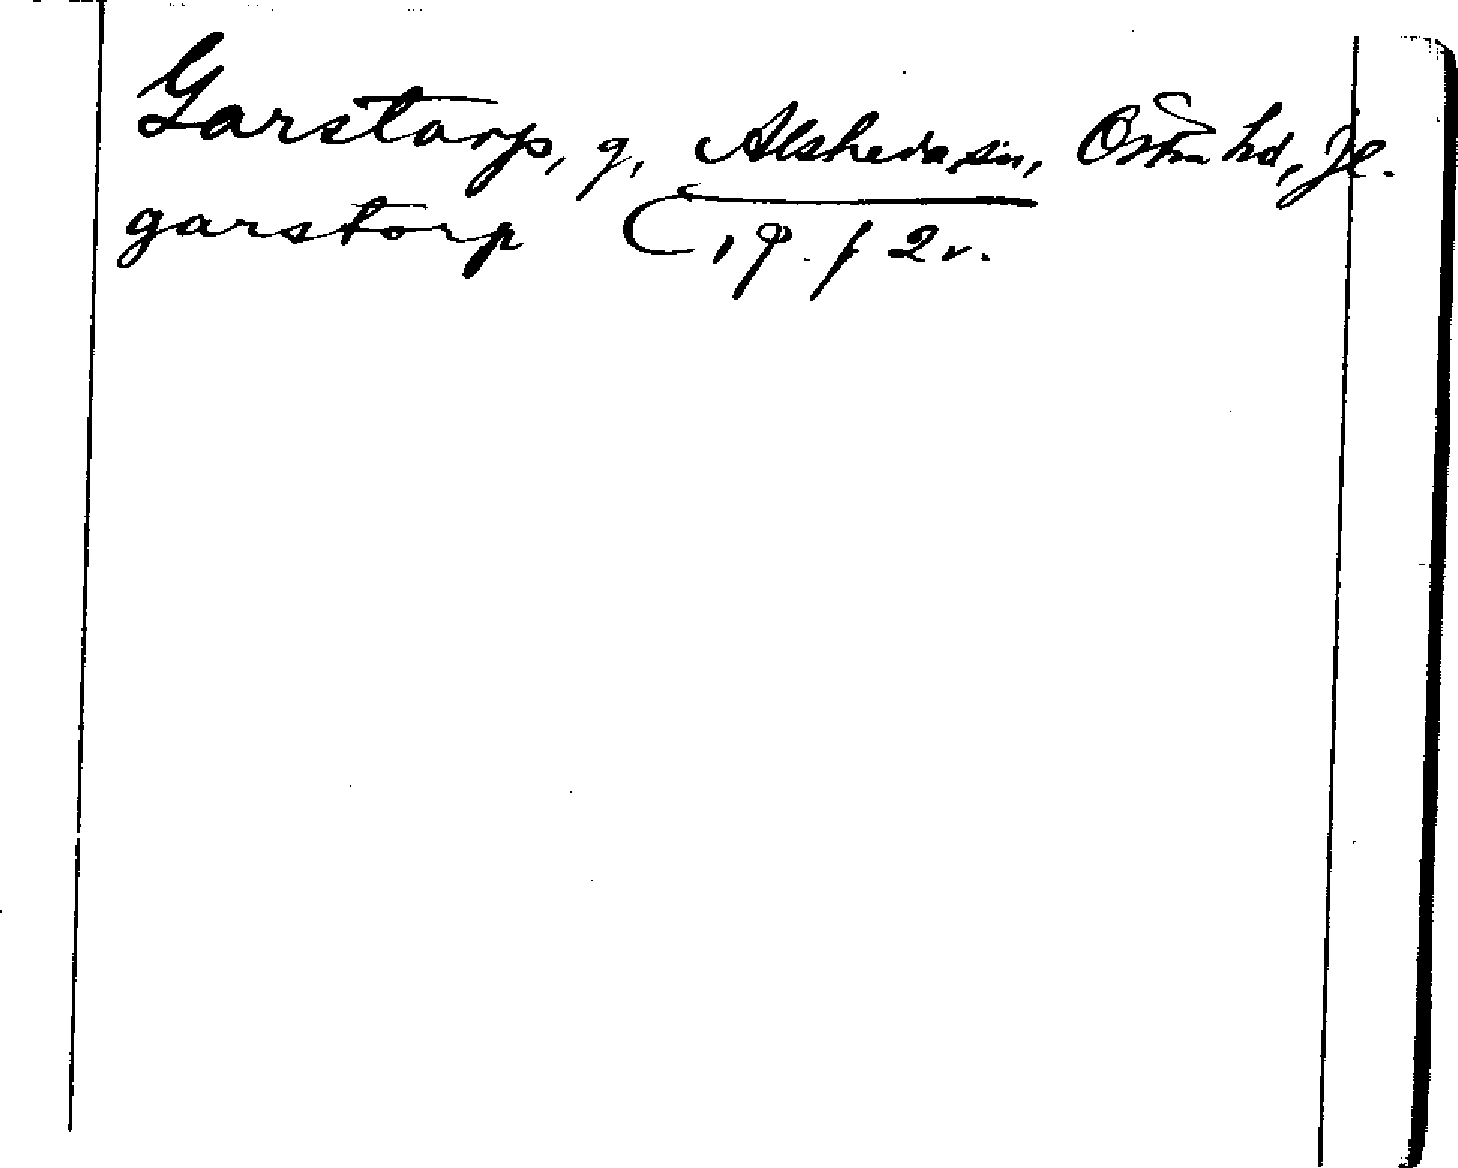 Garstorp, g, Alsheda sn, Östra hd, Jl.
garstorp C 19. f 2 v.